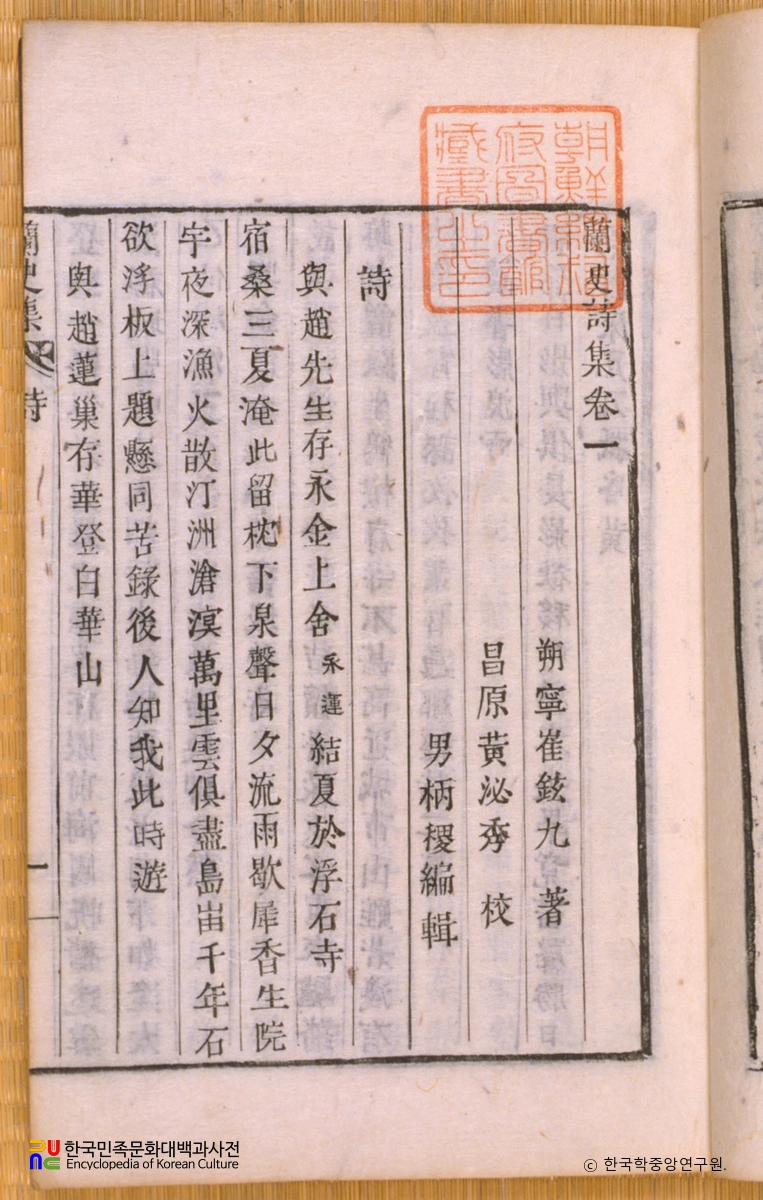 朝鮮總督
府圖書館
藏書之印
蘭史詩集卷一
朔寧崔鉉九 著
昌原黃泌秀 校
男柄稷編輯
詩
與趙先生存永金上舍永運結夏於浮石寺
宿桑三夏淹此留枕下泉聲日夕流雨歇犀香生院
宇夜深漁火散汀洲滄溟萬里雲俱盡島峀千年石
欲浮板上題懸同苦錄後人知我此時遊
與趙蓮巢存華登白華山
蘭史集 詩 一
한국민족문화대백과사전
Encyclopedia of Korean Culture
© 한국학중앙연구원.